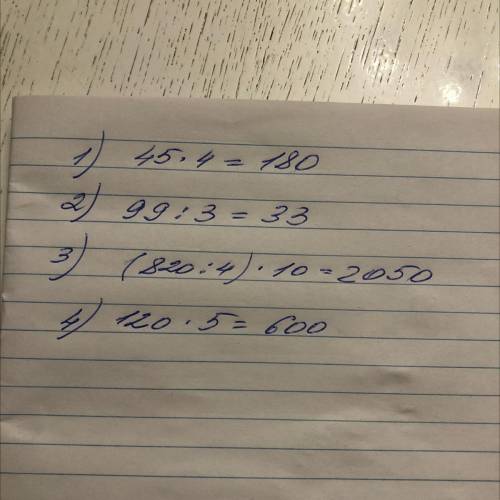 1) 45·4=180
2) 99:3=33
3) (820:4)·10=2050
4) 120·5=600